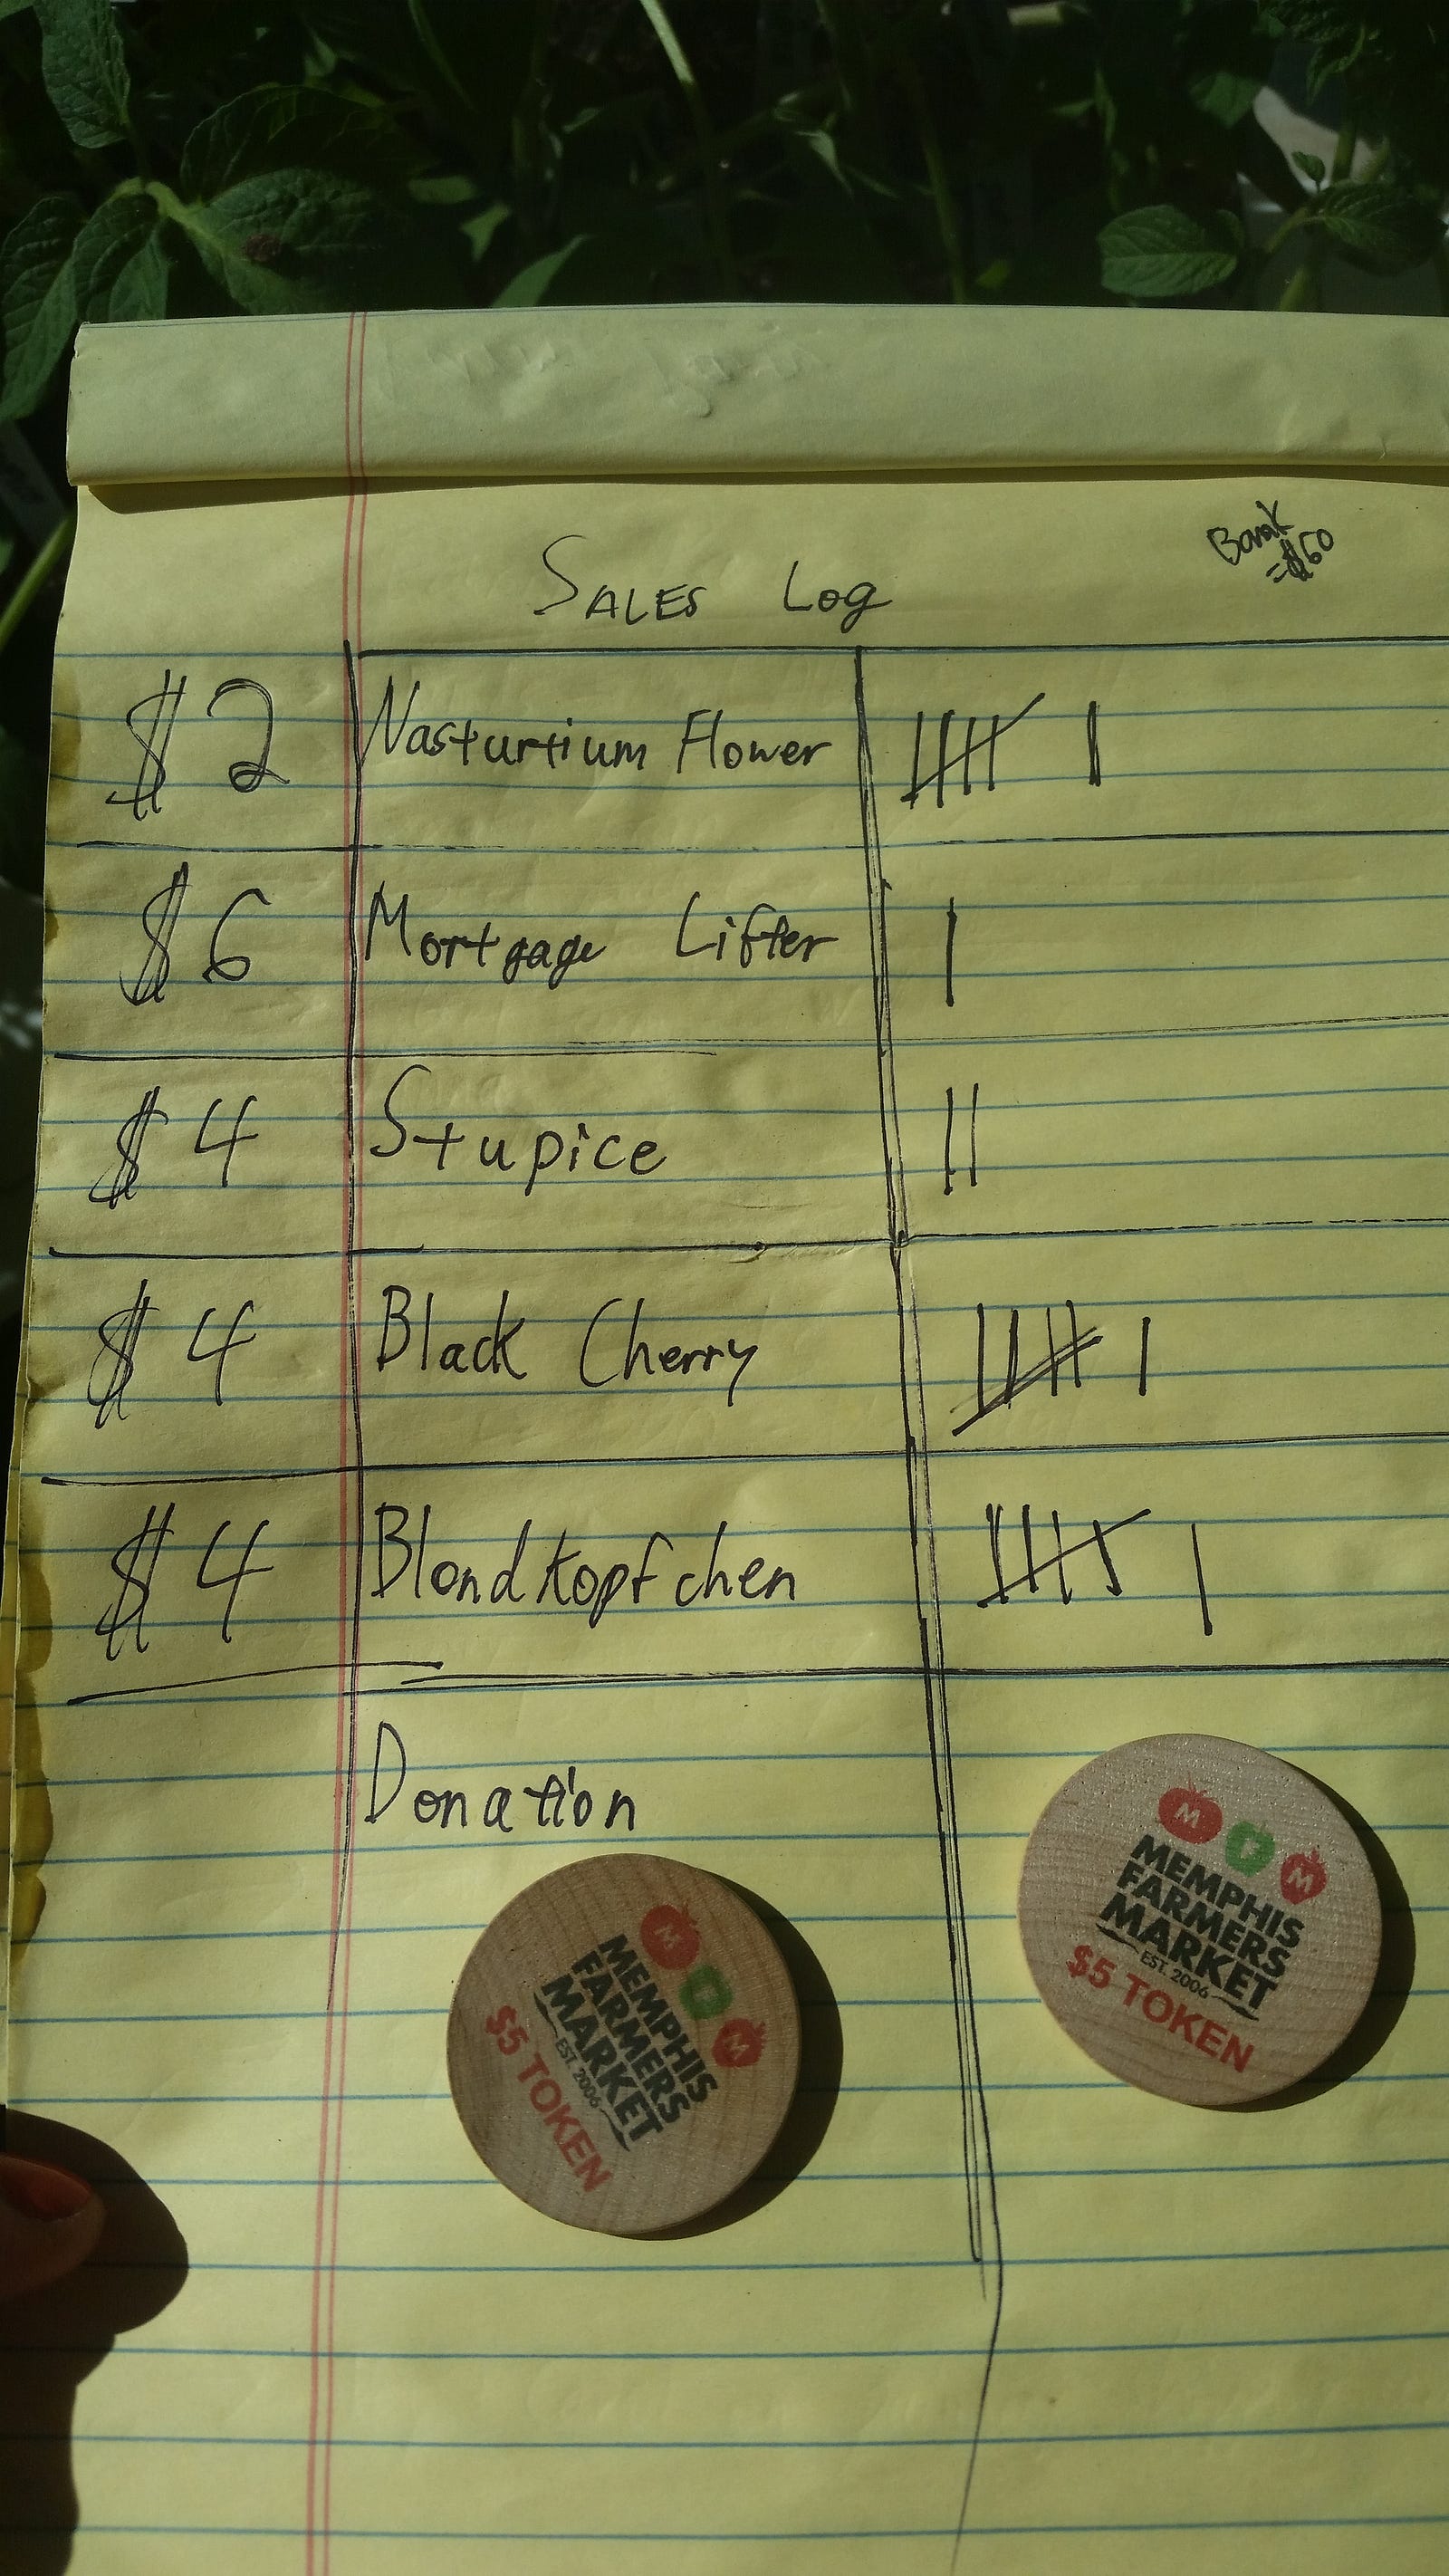 SALES LOG
Bank
=$60
$2 Nasturtium Flower
$6 Mortgage Lifter
$4 Stupice
$4 Black Cherry
$4 Blondkopfchen
Donation
M F M
MEMPHIS
FARMERS
MARKET
EST. 2006
$5 TOKEN
M M
MEMPHIS
FARMERS
MARKET
EST. 2006
$5 TOKEN